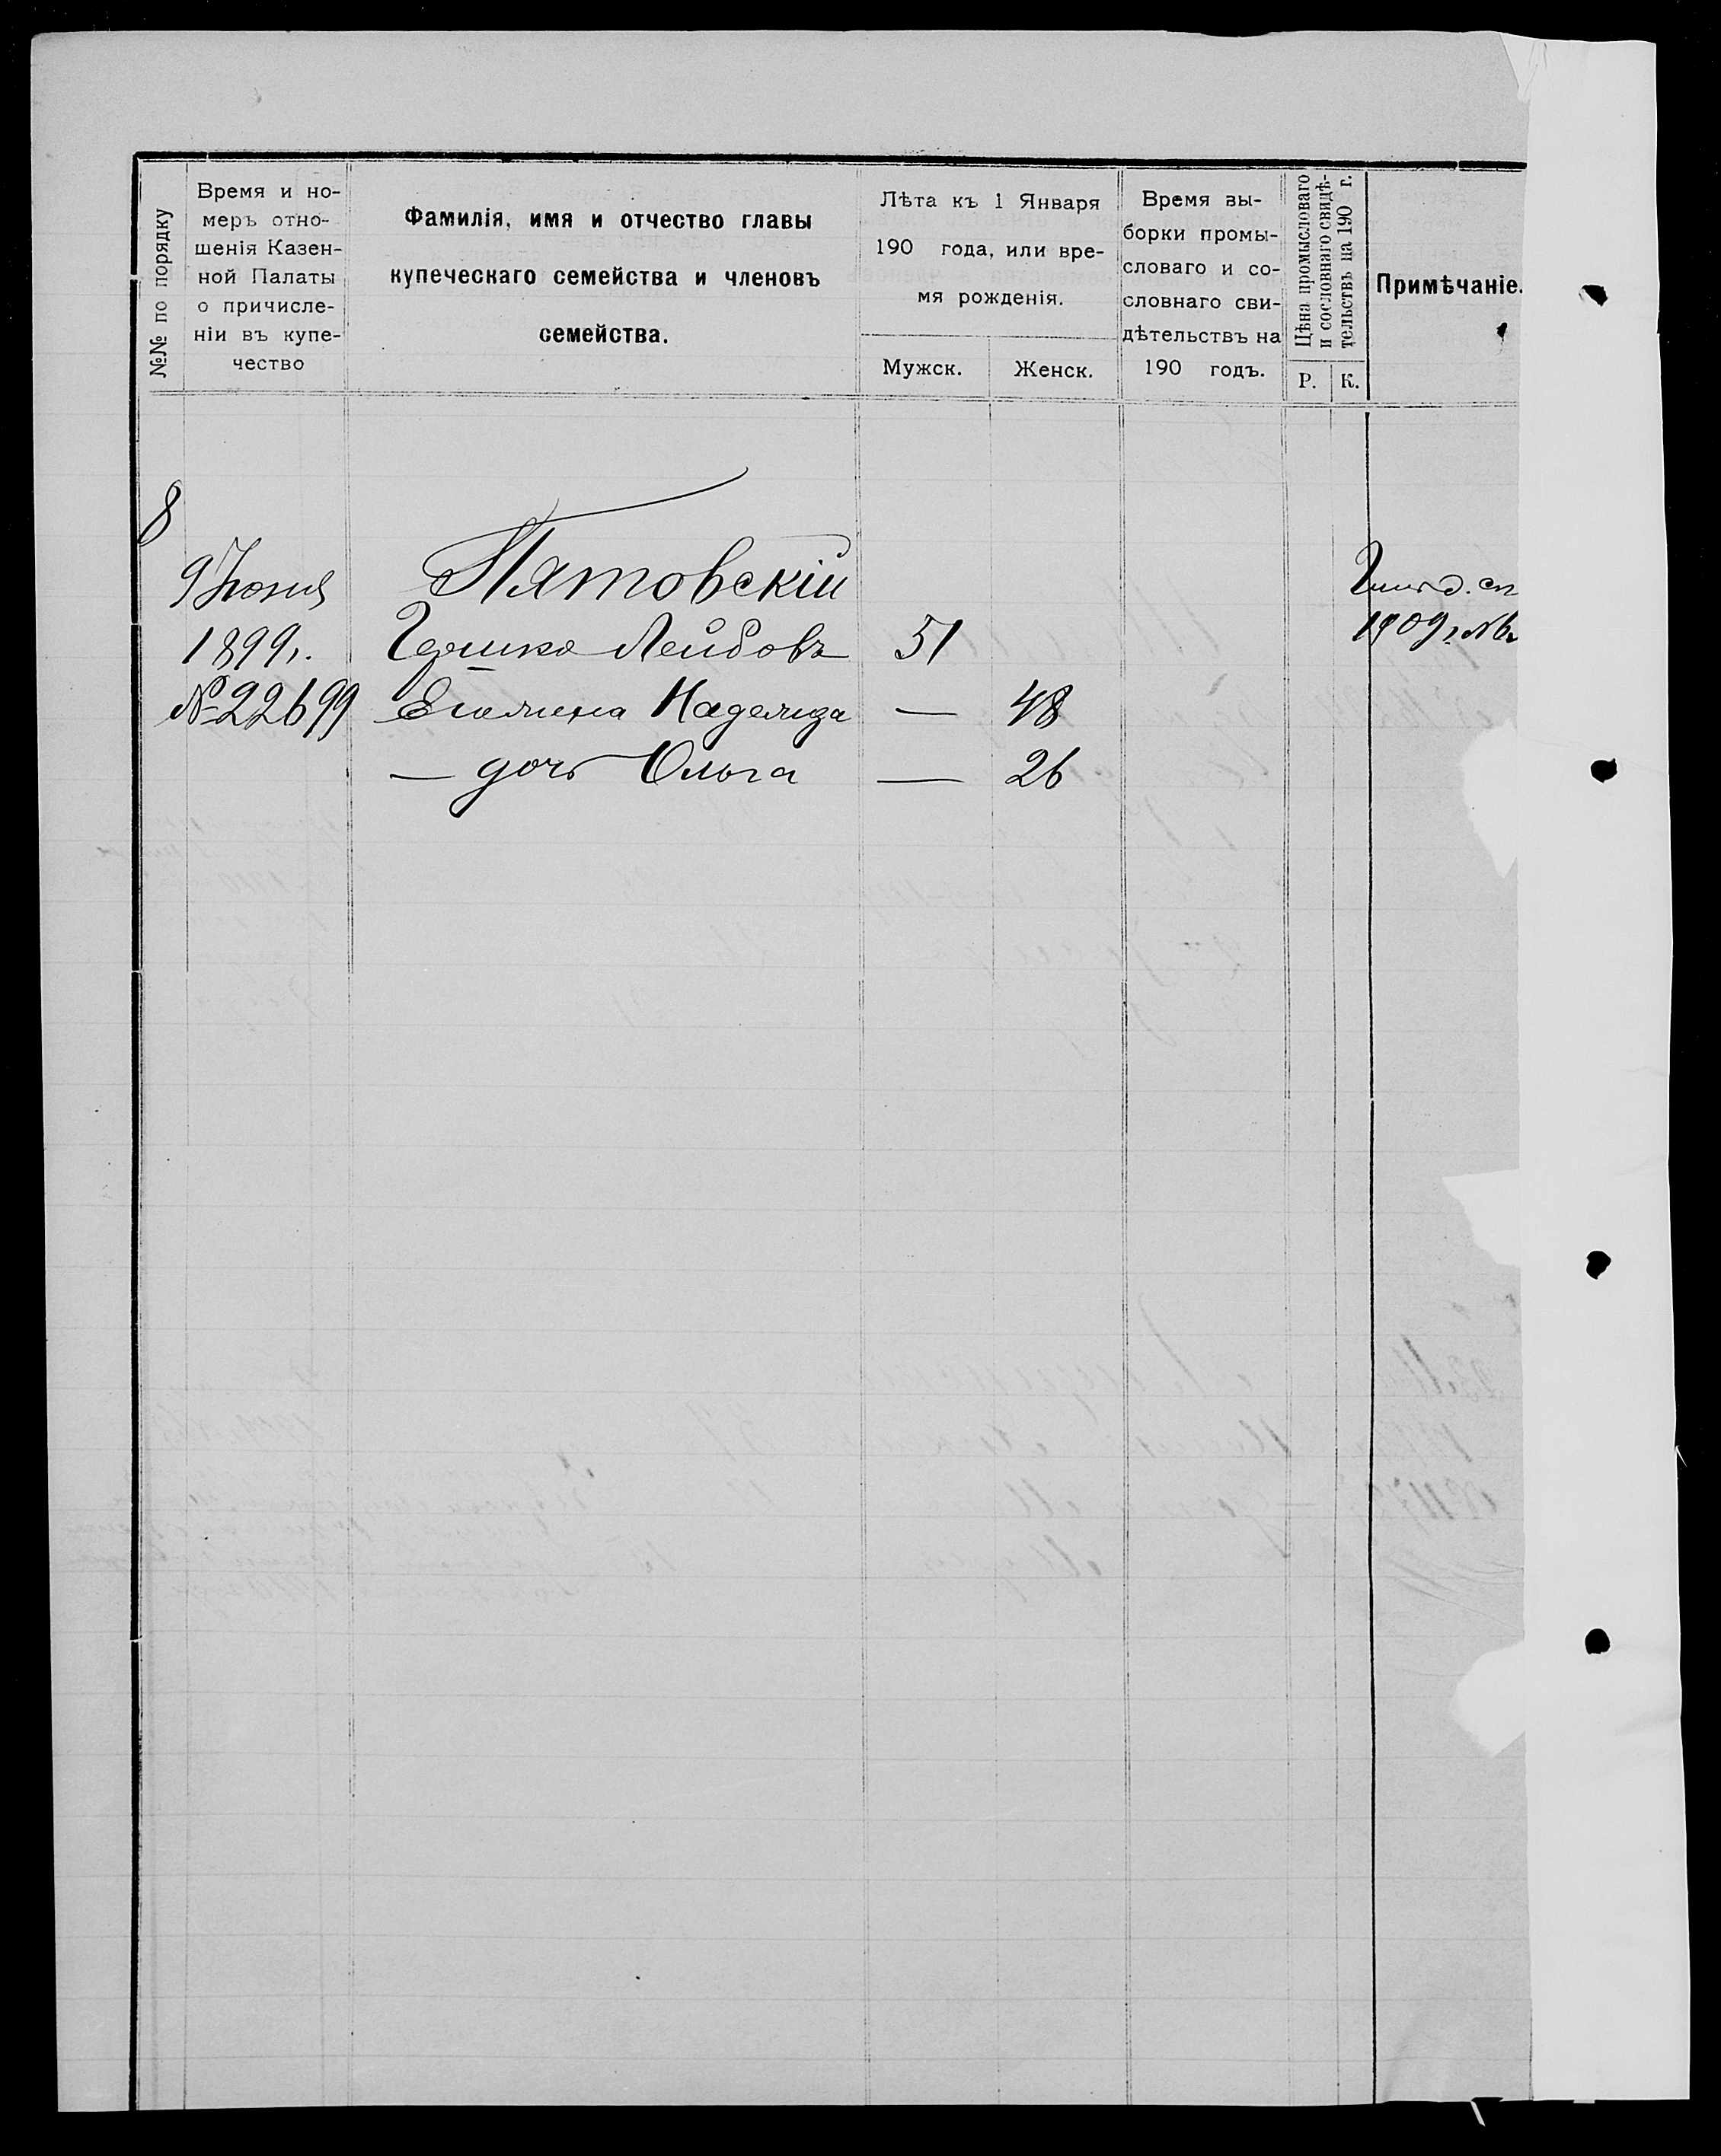 №№ по порядку
Время и но-
меръ отно-
шенія Казен-
ной Палаты
о причисле-
ніи въ купе-
чество
Фамилія, имя и отчество главы
купеческаго семейства и членовъ
семейства.
Лѣта къ 1 Января
190 года, или вре-
мя рожденія.
Мужск.
Женск.
Время вы-
борки промы-
словаго и со-
словнаго сви-
дѣтельствъ на
190 годъ.
Цѣна промысловаго
и сословнаго свидѣ-
тельствъ на 190 г.
Р. К.
Примѣчаніе.
8
9 Іюня Пятовскій
1899г. Гершко Лейбовъ 51 1909 г.
№ 22699 Его жена Надежда — 48
— дочь Ольга — 26